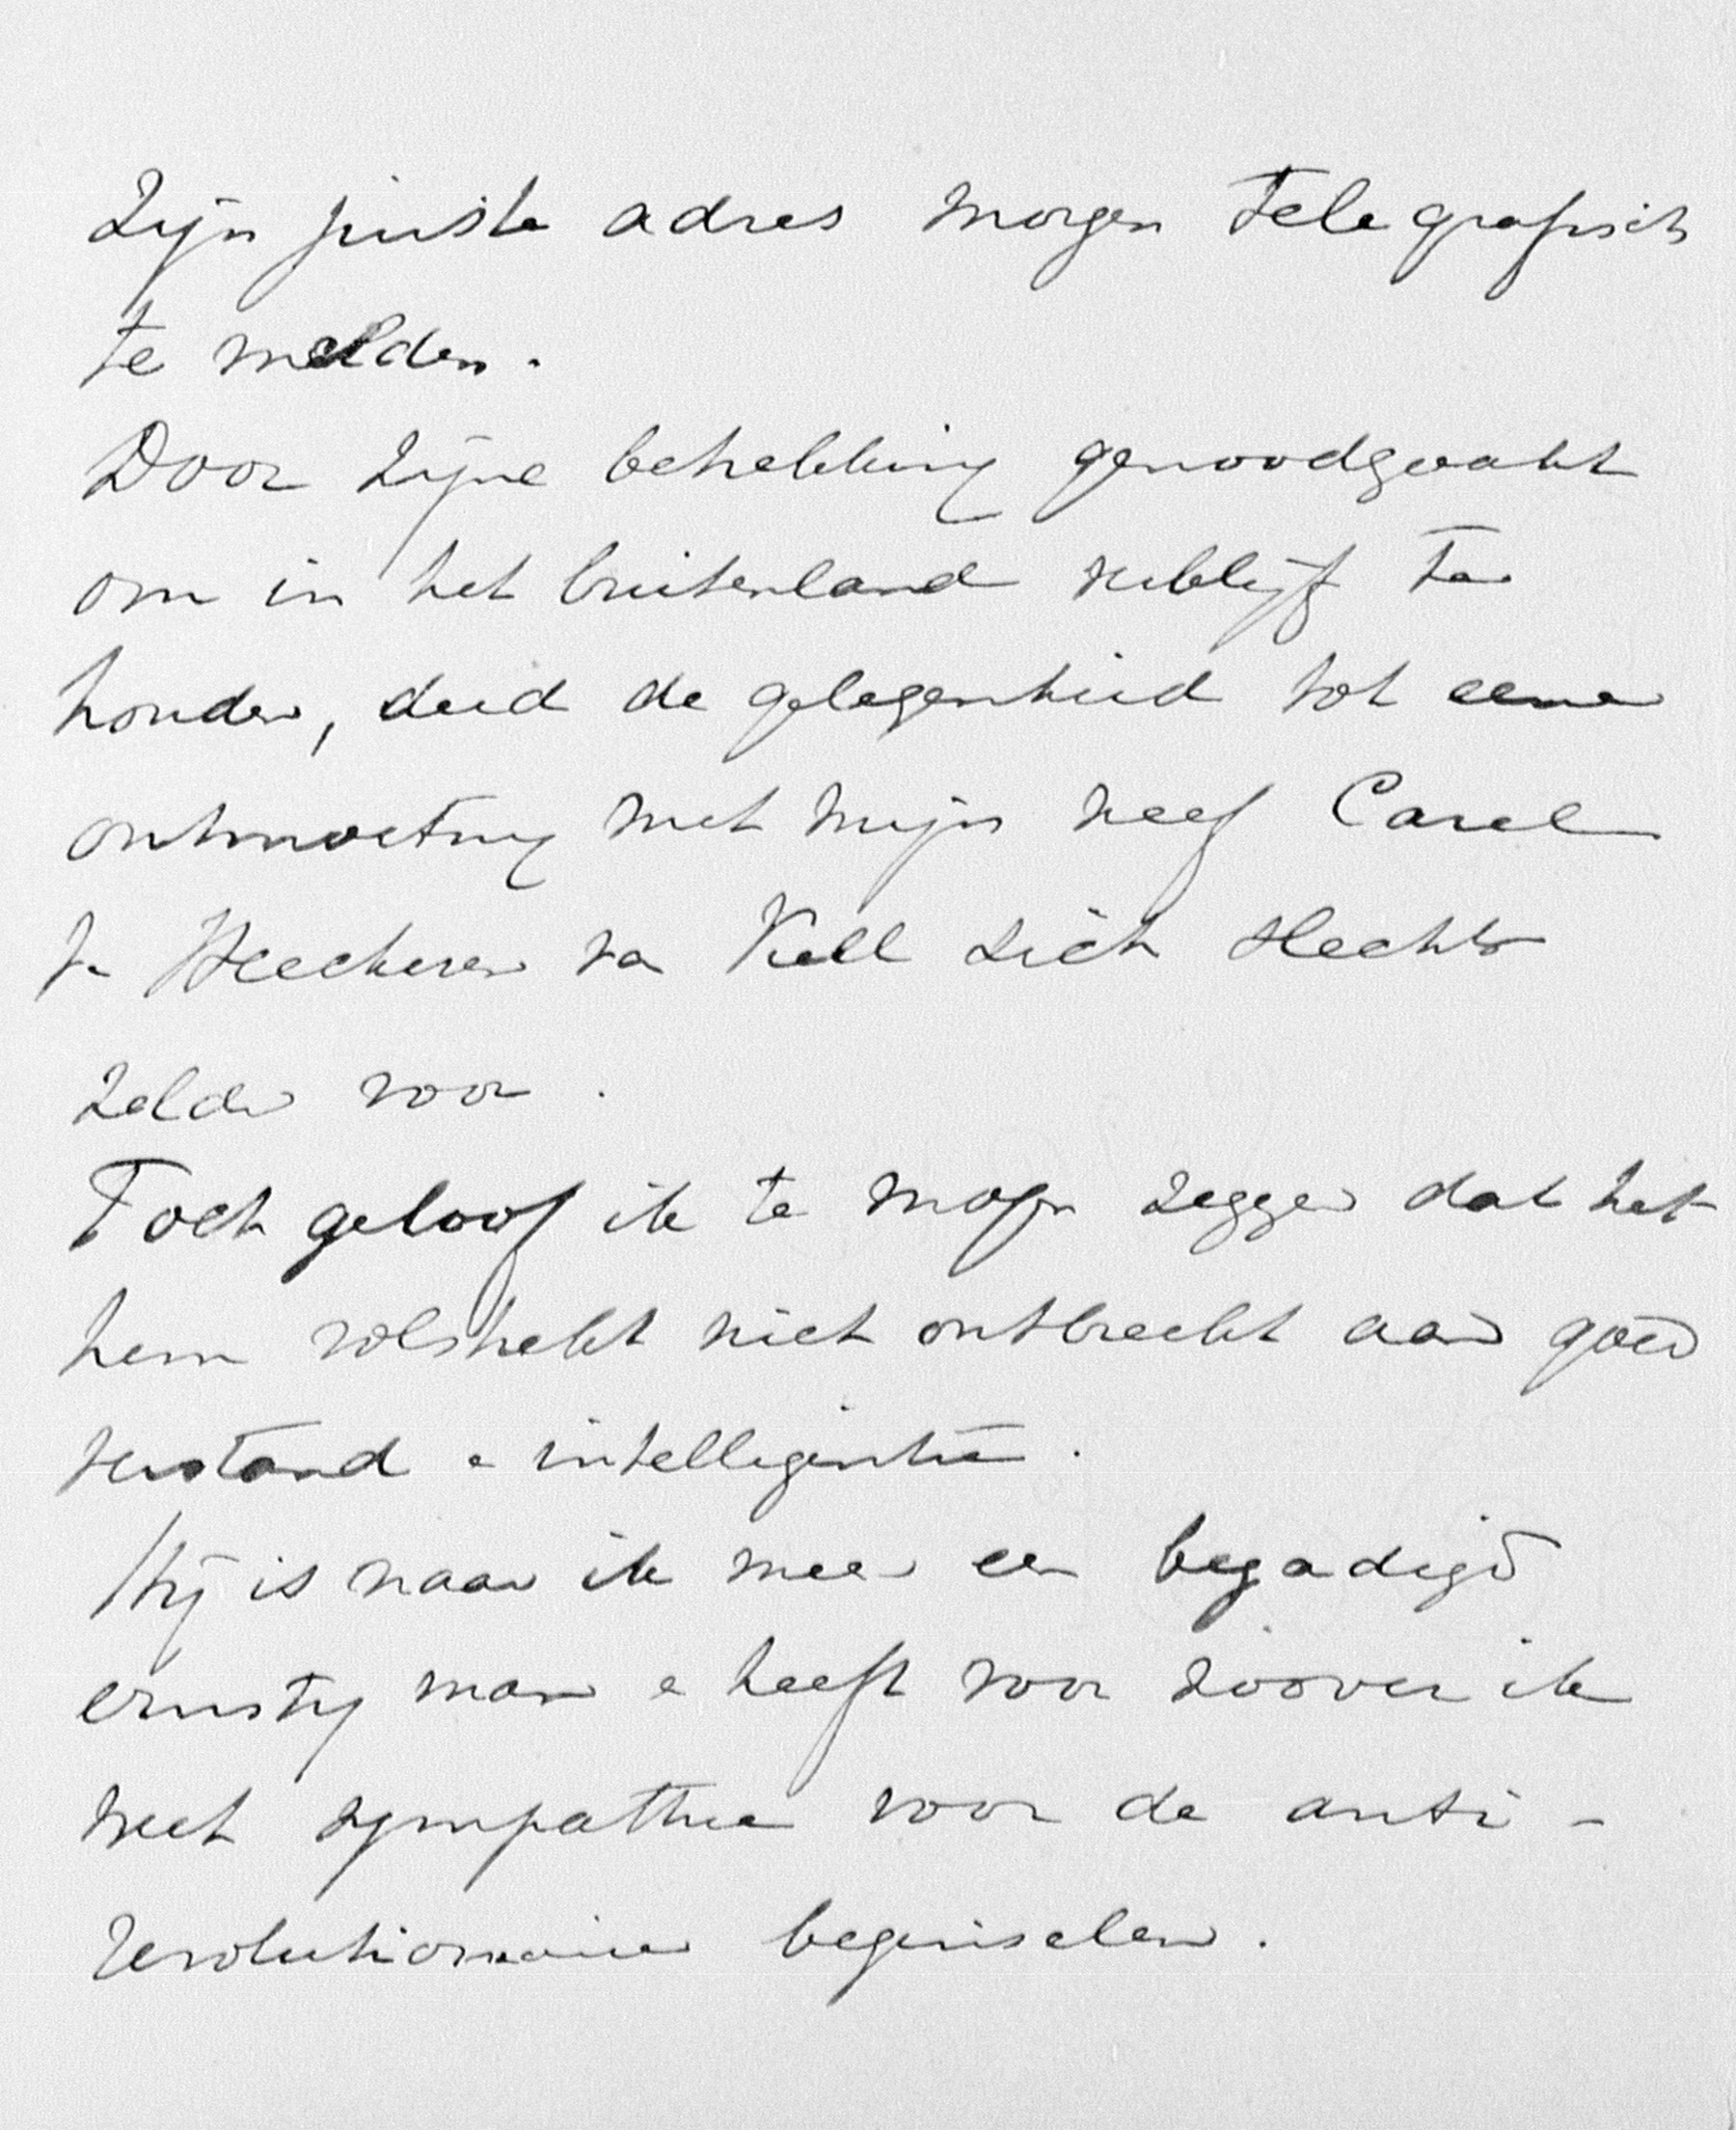 Zijn juiste adres morgen telegrafisch
te melden.
Door zijne betrekking genoodzaakt
om in het buitenland verblijf te
houden, deed de gelegenheid tot eene
ontmoeting met mijn neef Carel
v. Heeckeren va Kell zich slechts
zelden voor.
Toch geloof ik te mogen zeggen dat het
hem volstrekt niet ontbreekt aan goed
verstand e intelligentie.
Hij is naar ik meen een bezadigd
ernstig man e heeft voor zoover ik
weet sympathie voor de anti-
revolutionaire beginselen.